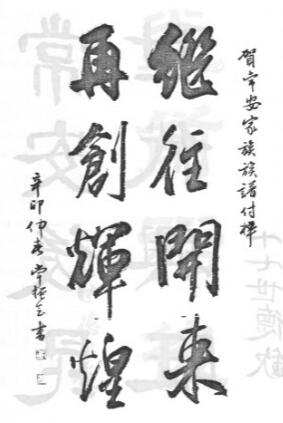 賀常安家族族譜付梓
繼往開來
再創輝煌
辛卯仲春常書